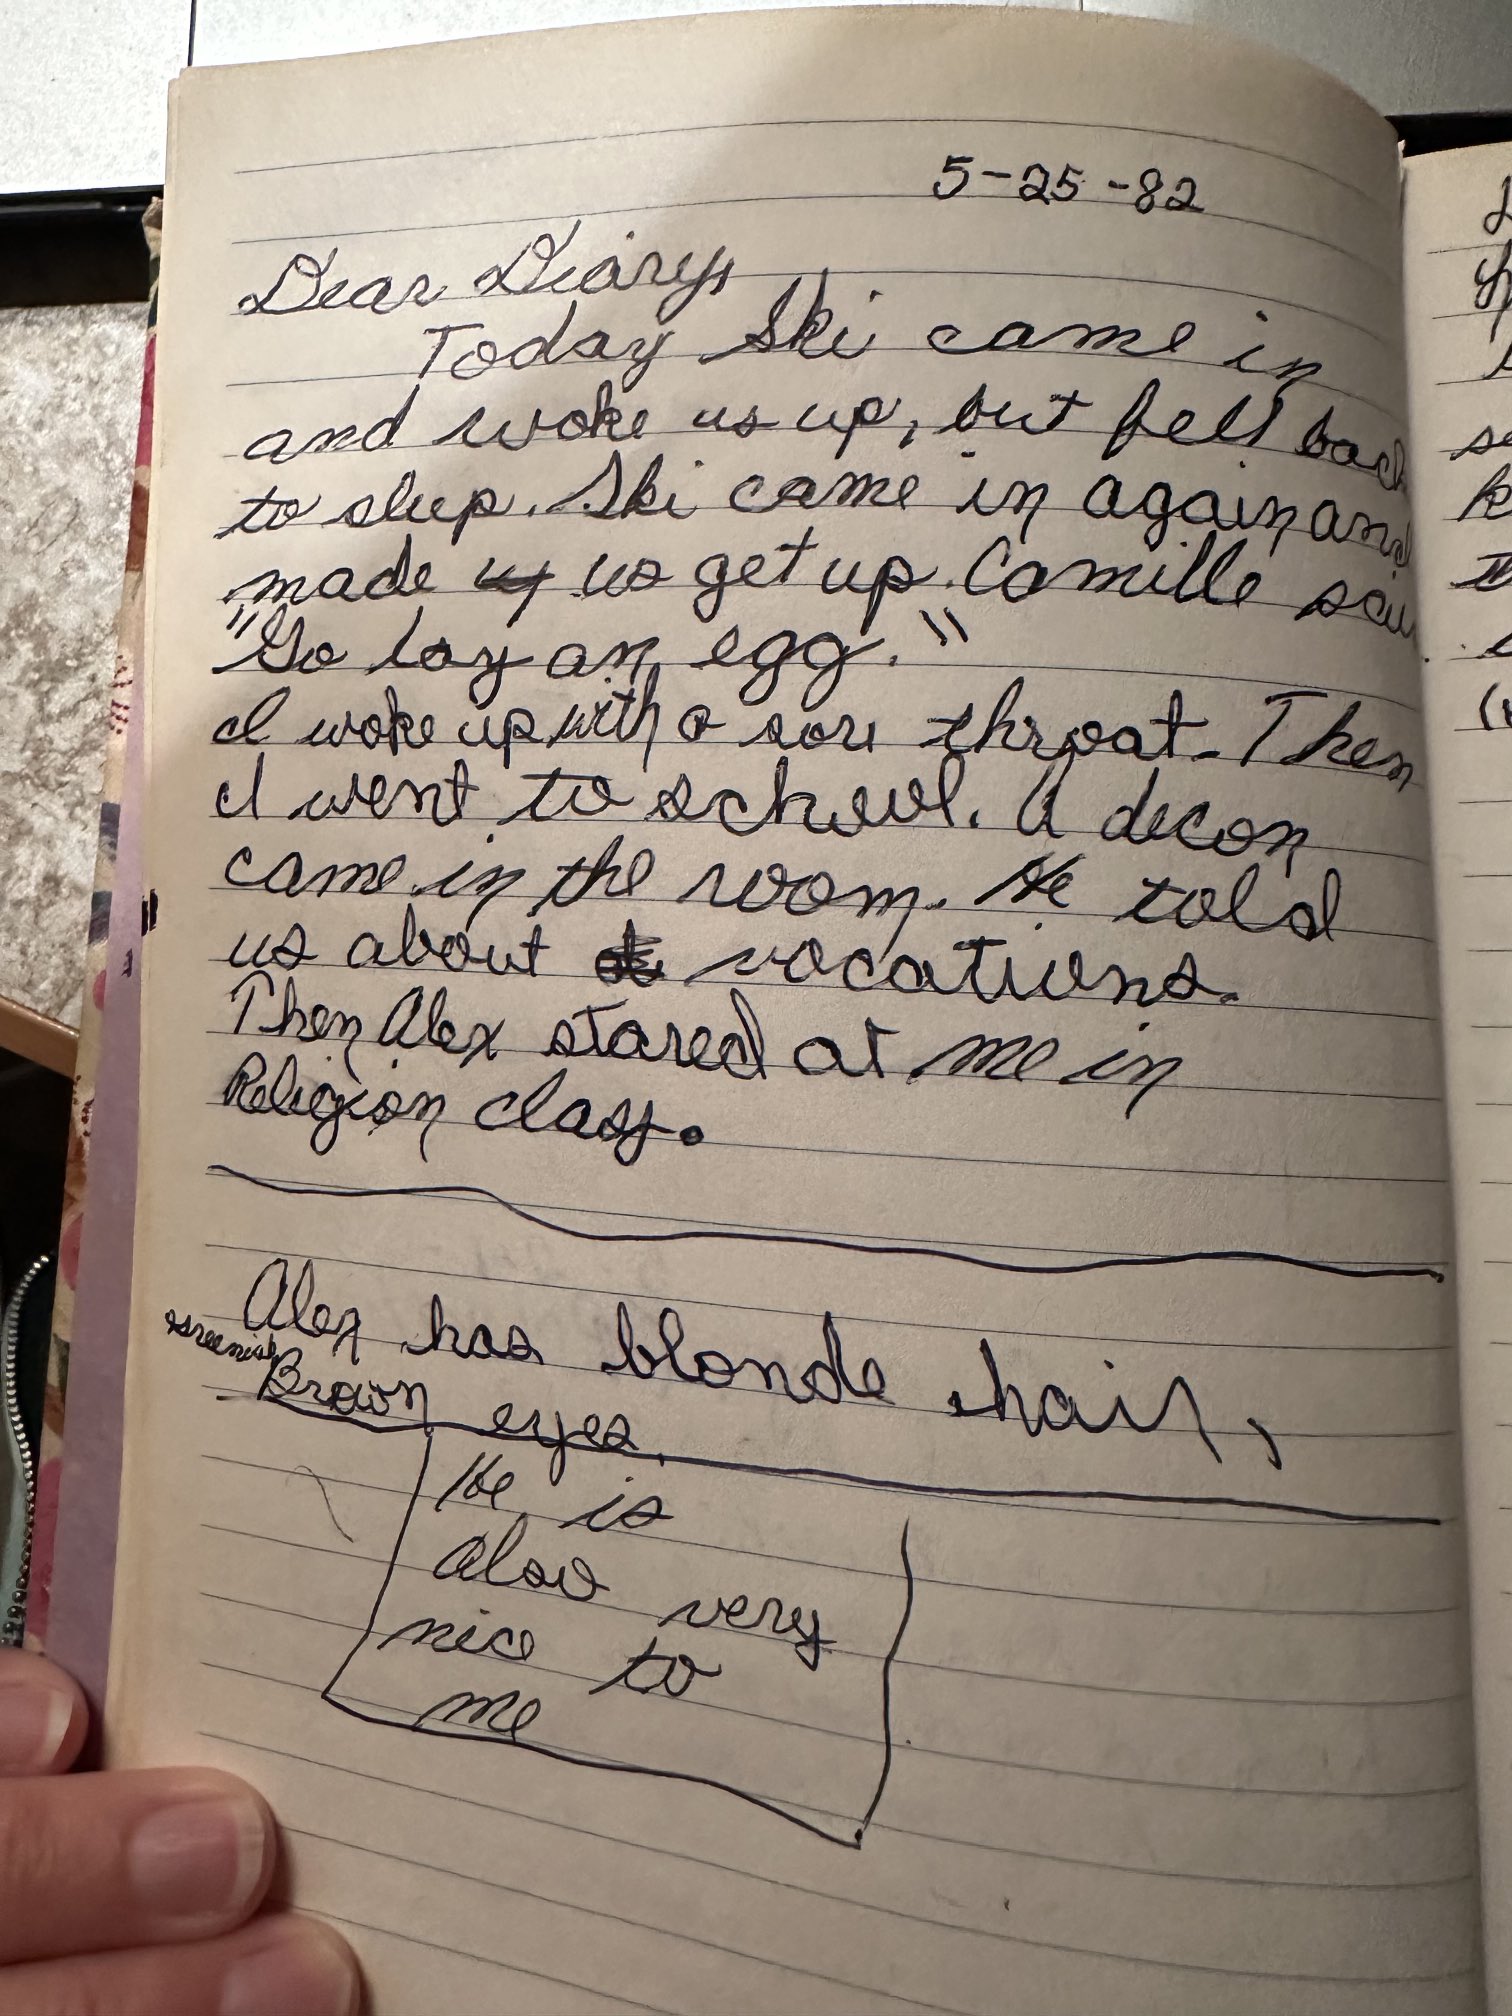 5-25-82
Dear Diary,
Today Ski came in
and woke us up, but fell back
to sleep. Ski came in again and
made us get up. Camille said
"Go lay an egg."
I woke up with a sore throat. Then
I went to school. A decon
came in the room. He told
us about vocations.
Then Alex stared at me in
Religion class.
Alex has blonde hair,
greenish
Brown eyes.
He is
also very
nice to
me